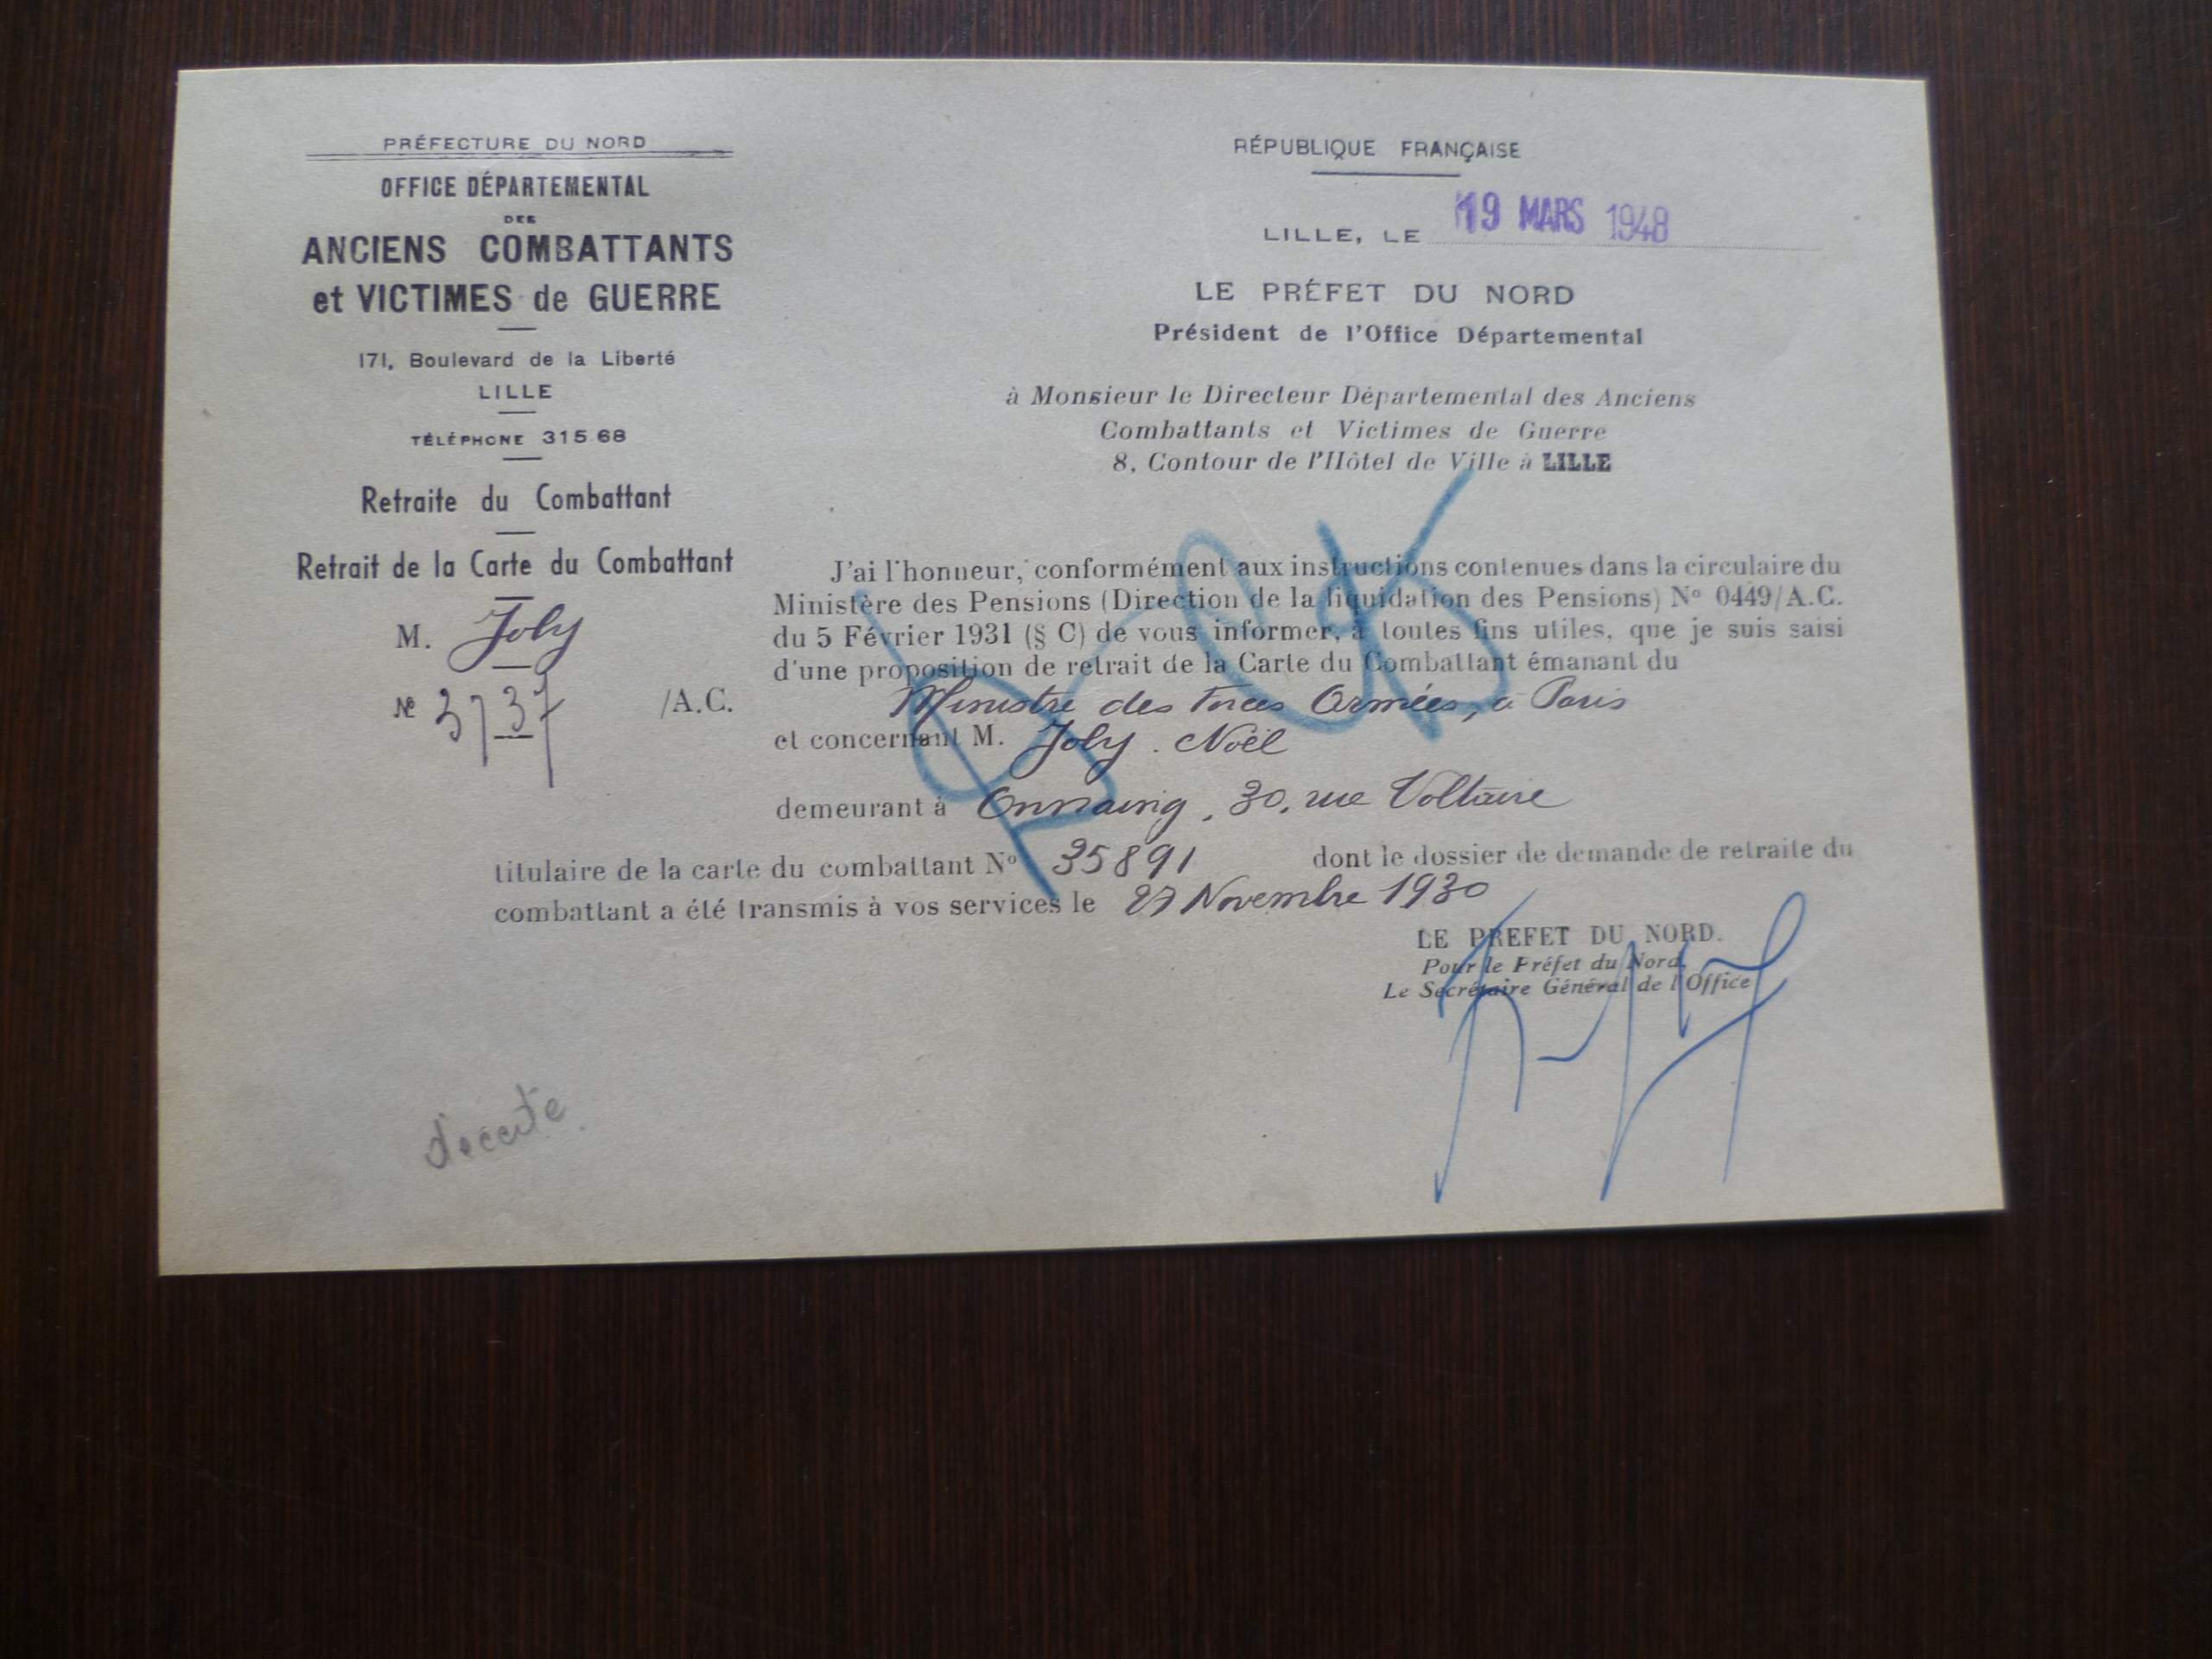 PRÉFECTURE DU NORD
OFFICE DÉPARTEMENTAL
DES
ANCIENS COMBATTANTS
et VICTIMES de GUERRE
171, Boulevard de la Liberté
LILLE
TÉLÉPHONE 315.68
Retraite du Combattant
Retrait de la Carte du Combattant
M. Joly
№ 3737 /A.C.
RÉPUBLIQUE FRANÇAISE
LILLE, LE 19 MARS 1948
LE PRÉFET DU NORD
Président de l'Office Départemental
à Monsieur le Directeur Départemental des Anciens
Combattants et Victimes de Guerre
8, Contour de l'Hôtel de Ville à LILLE
J'ai l'honneur, conformément aux instructions contenues dans la circulaire du
Ministère des Pensions (Direction de la liquidation des Pensions) Nº 0449/A.C.
du 5 Février 1931 (§ C) de vous informer, à toutes fins utiles, que je suis saisi
d'une proposition de retrait de la Carte du Combattant émanant du
Ministre des Forces Armées, à Paris
et concernant M. Joly. Noël
demeurant à Onnaing, 30, rue Voltaire
titulaire de la carte du combattant Nº 35891 dont le dossier de demande de retraite du
combattant a été transmis à vos services le 27 Novembre 1930
LE PREFET DU NORD.
Pour le Préfet du Nord,
Le Secrétaire Général de l'Office